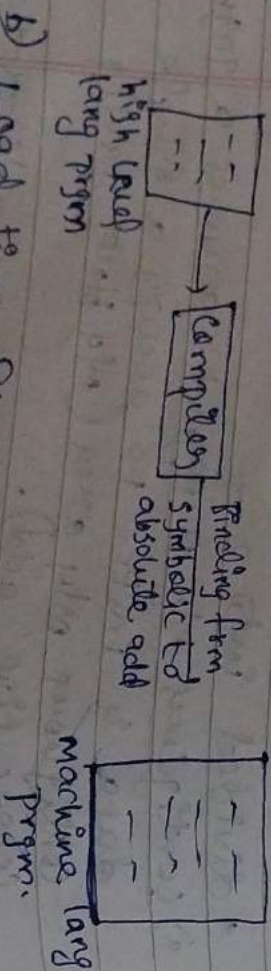 high level
lang prgm
Compiler
Binding frm
symbolic to
absolute add
machine lang
prgm.
b)